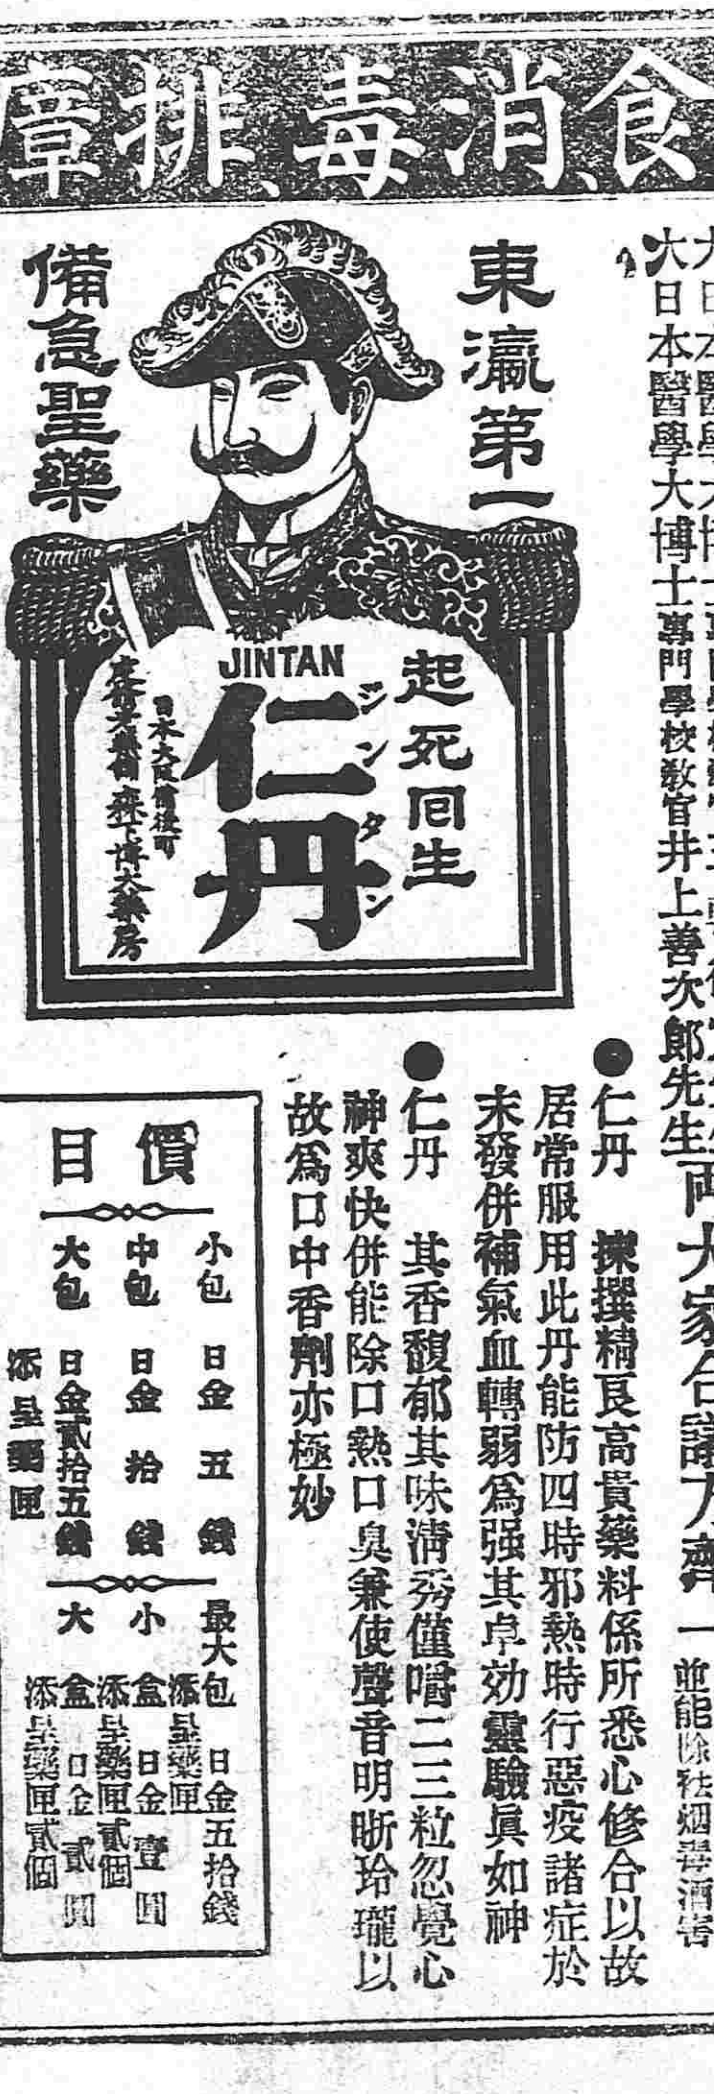 食消、毒、排、瘴
大日本醫學大博士專門學校敎官井上善次郞先生
兩大家合議方劑
並能除祛烟毒酒害
東瀛第一
備急聖藥
起死回生
JINTAN
仁丹
ジンタン
日本大阪備後町
森下博大藥房
●仁丹　揀撰精良高貴藥料係所悉心修合以故
居常服用此丹能防四時邪熱時行惡疫諸症於
未發併補氣血轉弱爲强其卓効靈驗眞如神
●仁丹　其香馥郁其味淸秀僅嚼二三粒忽覺心
神爽快併能除口熱口臭兼使聲音明晣玲瓏以
故爲口中香劑亦極妙
價目
小包　日金五錢
中包　日金拾錢
大包　日金貳拾五錢
添呈藥匣
最大包　日金五拾錢
添呈藥匣
小盒　日金壹圓
添呈藥匣貳個
大盒　日金貳圓
添呈藥匣貳個